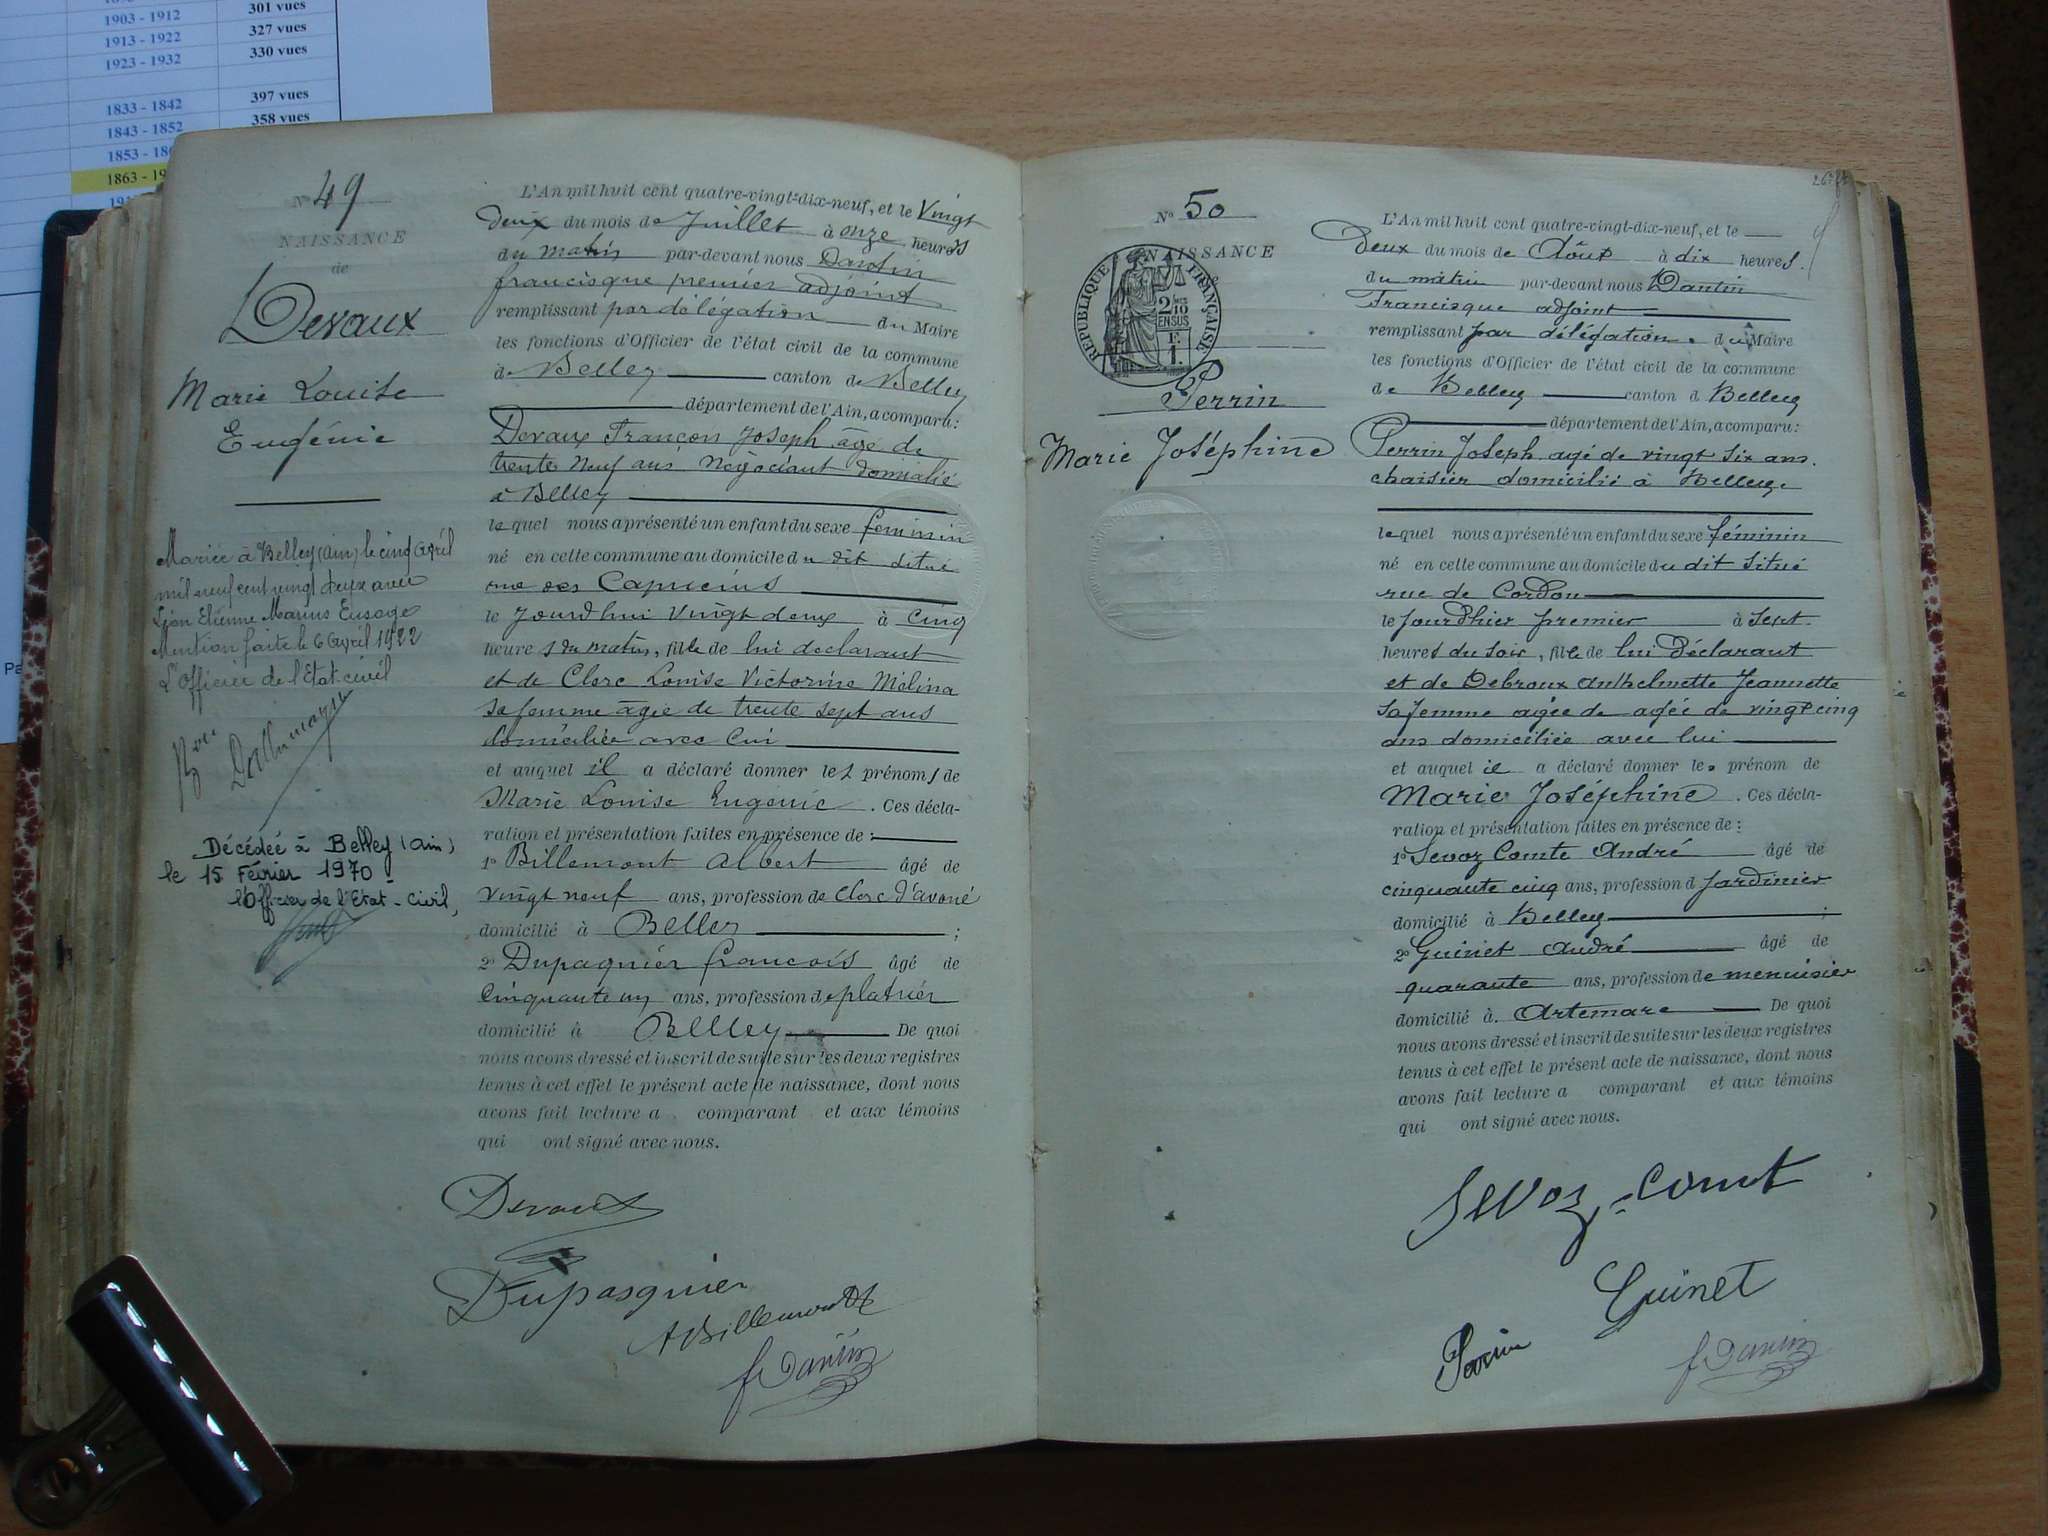 1903 - 1912 301 vues
1913 - 1922 327 vues
1923 - 1932 330 vues
1833 - 1842 397 vues
1843 - 1852 358 vues
1853 - 18
1863 - 19
Pa
N° 49
NAISSANCE
de
Devaux
Marie Louise
Eugénie
Mariée à Belley (ain) le cinq avril
mil neuf cent vingt deux avec
Léon Etienne Marius
Mention faite le 6 avril 1922
L'officier de l'Etat-civil
Décédée à Belley (ain)
le 15 Février 1970
l'Officier de l'Etat-Civil,
L'An mil huit cent quatre-vingt-dix-neuf, et le Vingt
deux du mois de Juillet à onze heures
du matin par-devant nous Dantin
francisque premier adjoint
remplissant par délégation du Maire
les fonctions d'Officier de l'état civil de la commune
de Belley canton de Belley
département de l'Ain, a comparu:
Devaux Françon Joseph âgé de
trente neuf ans Négociant domicilié
à Belley
le quel nous a présenté un enfant du sexe feminin
né en cette commune au domicile du dit situé
rue des Capucins
le Jourd'hui vingt deux à cinq
heures du matin, fille de lui déclarant
et de Clerc Louise Victorine Mélina
sa femme âgée de trente sept ans
domiciliée avec lui
et auquel il a déclaré donner les prénoms de
Marie Louise Eugénie. Ces décla-
ration et présentation faites en présence de :
1° Billemont Albert âgé de
vingt neuf ans, profession de Clerc d'avoué
domicilié à Belley ;
2° Dupagnier françois âgé de
Cinquante un ans, profession de platrier
domicilié à Belley De quoi
nous avons dressé et inscrit de suite sur les deux registres
tenus à cet effet le présent acte de naissance, dont nous
avons fait lecture a comparant et aux témoins
qui ont signé avec nous.
Devaux
Dupasquier
A Billemont
f Dantin
N° 50
NAISSANCE
RÉPUBLIQUE FRANÇAISE
2/10
EN SUS
1 F.
Perrin
Marie Joséphine
L'An mil huit cent quatre-vingt-dix-neuf, et le
Deux du mois de Août à dix heures.
du matin par-devant nous Dantin
Francisque adjoint
remplissant par délégation du Maire
les fonctions d'Officier de l'état civil de la commune
de Belley canton d Belley
département de l'Ain, a comparu:
Perrin Joseph agé de vingt six ans.
chaisier domicilié à Belley.
le quel nous a présenté un enfant du sexe féminin
né en cette commune au domicile du dit situé
rue de Cordon
le Jourd'hier premier à sept
heures du soir, fille de lui Déclarant
et de Debroux Anthelmette Jeannette
sa femme agée de agée de vingt cinq
ans domiciliée avec lui
et auquel il a déclaré donner le prénom de
Marie Joséphine. Ces décla-
ration et présentation faites en présence de :
1° Sevoz Comte André âgé de
cinquante cinq ans, profession d Jardinier
domicilié à Belley ;
2° Guinet André âgé de
quarante ans, profession de menuisier
domicilié à Artemare De quoi
nous avons dressé et inscrit de suite sur les deux registres
tenus à cet effet le présent acte de naissance, dont nous
avons fait lecture a comparant et aux témoins
qui ont signé avec nous.
Sevoz-Comt
Guinet
Perrin
f Dantin